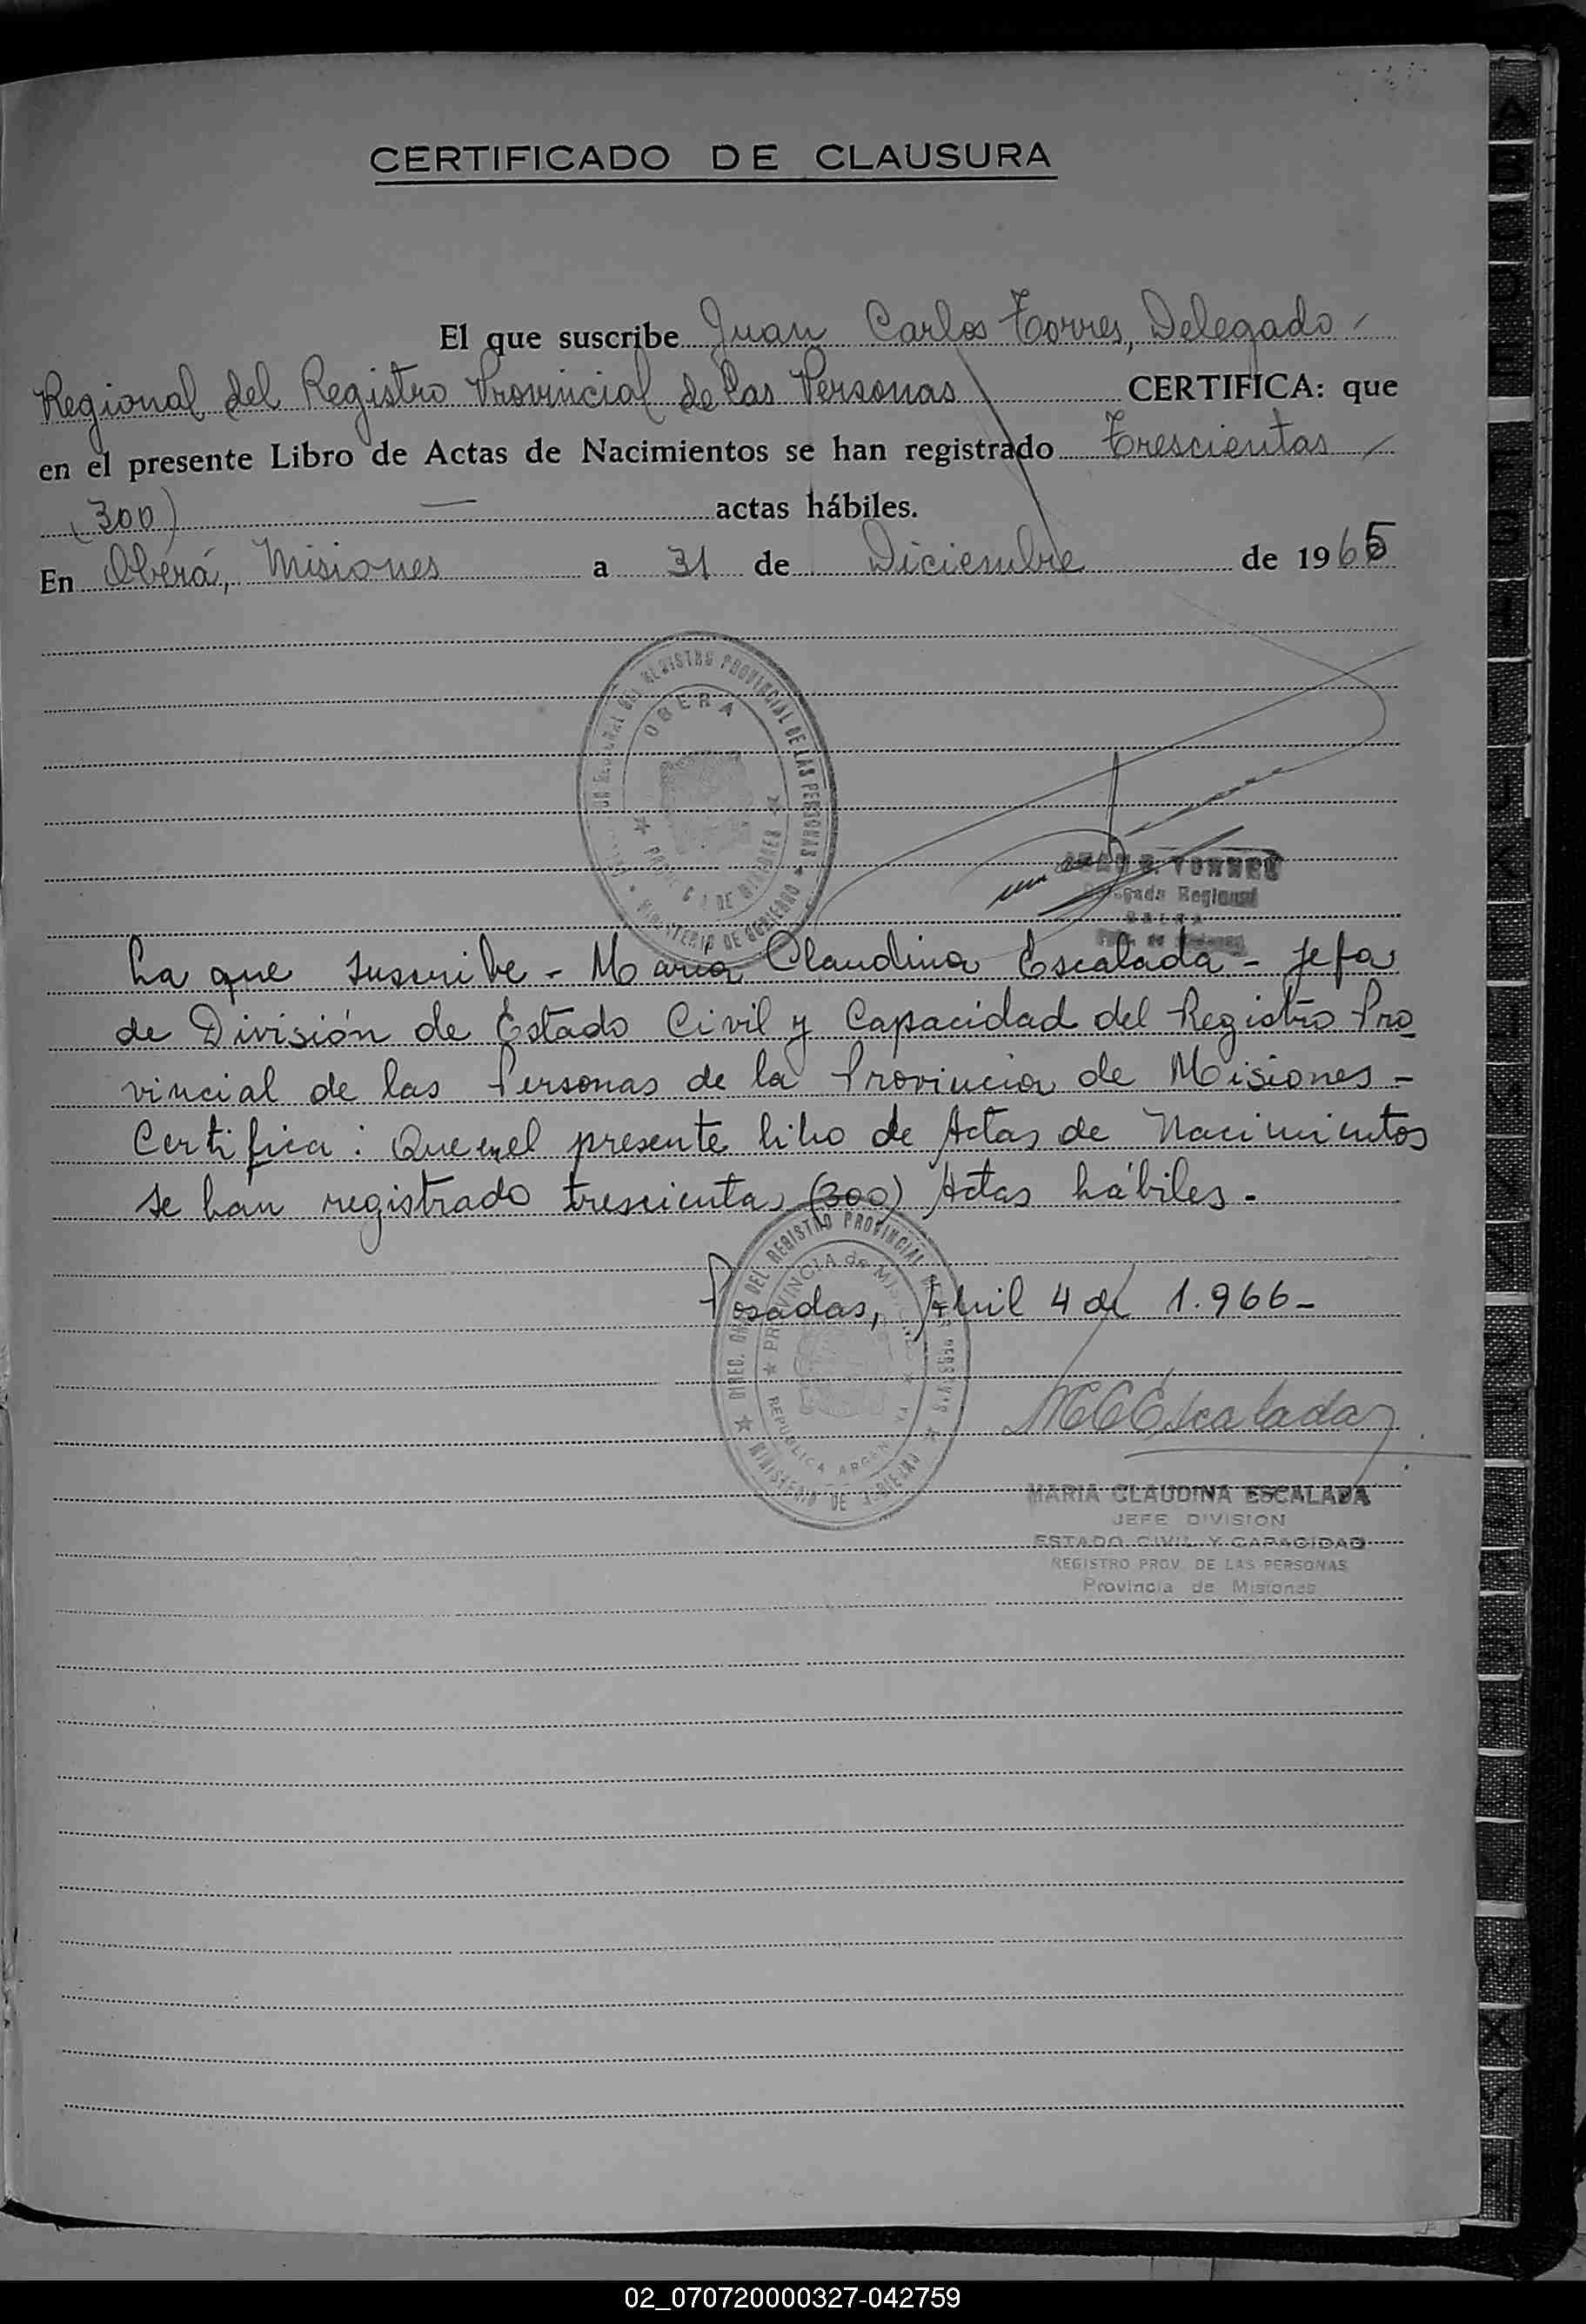 CERTIFICADO DE CLAUSURA
El que suscribe Juan Carlos Torres, Delegado
Regional del Registro Provincial de las Personas CERTIFICA: que
en el presente Libro de Actas de Nacimientos se han registrado Trescientas
(300) — actas hábiles.
En Oberá, Misiones a 31 de Diciembre de 1965
REGISTRO PROVINCIAL DE LAS PERSONAS
OBERA
MINISTERIO DE GOBIERNO
JUAN C. TORRES
Delegado Regional
OBERA
La que suscribe - Maria Claudina Escalada - Jefa
de División de Estado Civil y Capacidad del Registro Pro
vincial de las Personas de la Provincia de Misiones -
Certifica: Que en el presente libro de Actas de Nacimientos
se han registrado trescientas (300) Actas hábiles.
Posadas, Abril 4 de 1.966-
DIREC. GRAL. DEL REGISTRO PROVINCIAL DE LAS PERSONAS
PROVINCIA de MISIONES
REPUBLICA ARGENTINA
MINISTERIO DE GOBIERNO
MCEscalada
MARIA CLAUDINA ESCALADA
JEFE DIVISION
ESTADO CIVIL Y CAPACIDAD
REGISTRO PROV. DE LAS PERSONAS
Provincia de Misiones
02_070720000327-042759